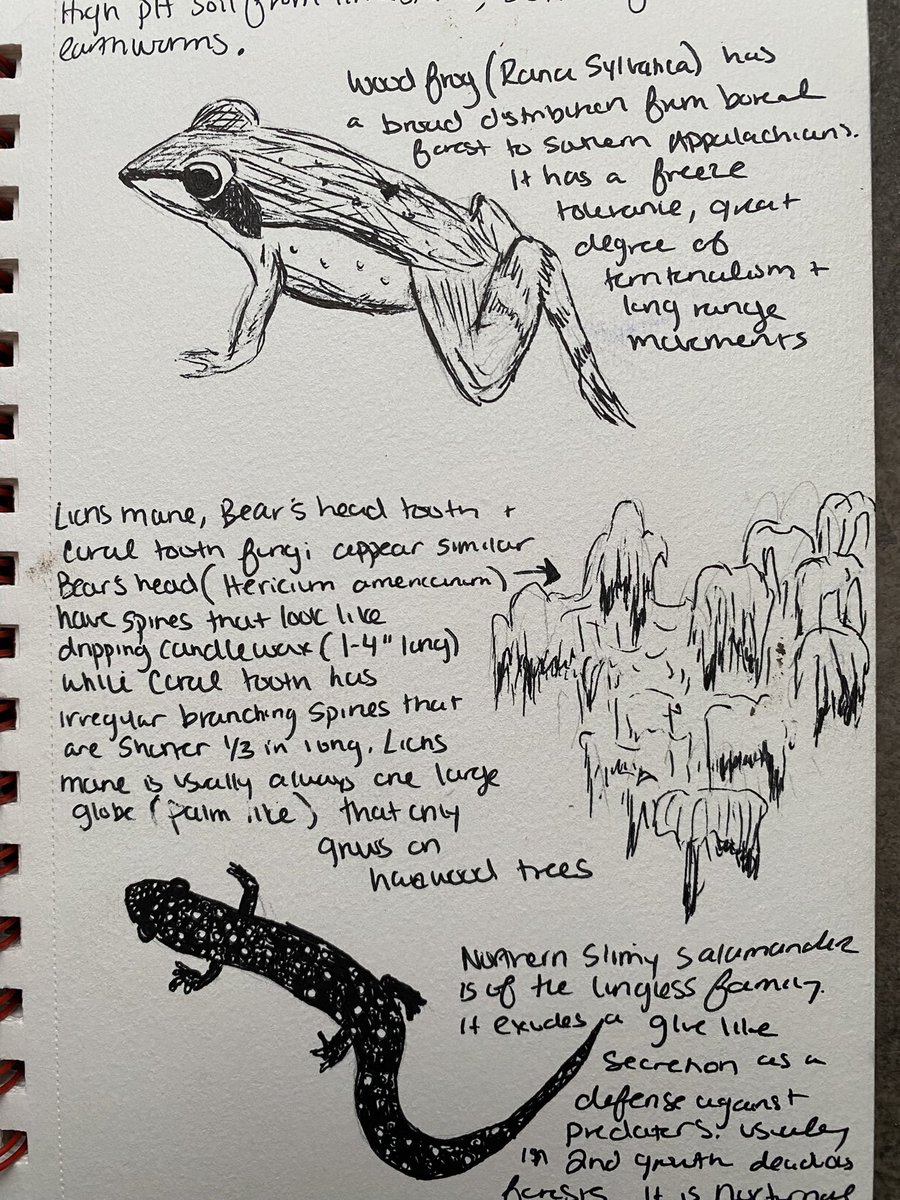 High pH soil from
earthworms.
Wood frog (Rana Sylvatica) has
a broad distribution from boreal
forest to southern Appalachians.
It has a freeze
tolerance, great
degree of
territorialism +
long range
movements
Lions mane, Bear's head tooth +
Coral tooth fungi appear similar
Bear's head (Hericium americanum) →
have spines that look like
dripping candlewax (1-4" long)
while Coral tooth has
irregular branching spines that
are shorter 1/3 in long. Lions
mane is usually always one large
globe (palm like) that only
grows on
hardwood trees
Northern Slimy Salamander
is of the lungless family.
It exudes a glue like
secretion as a
defense against
predators. usually
in 2nd growth
forests. It is